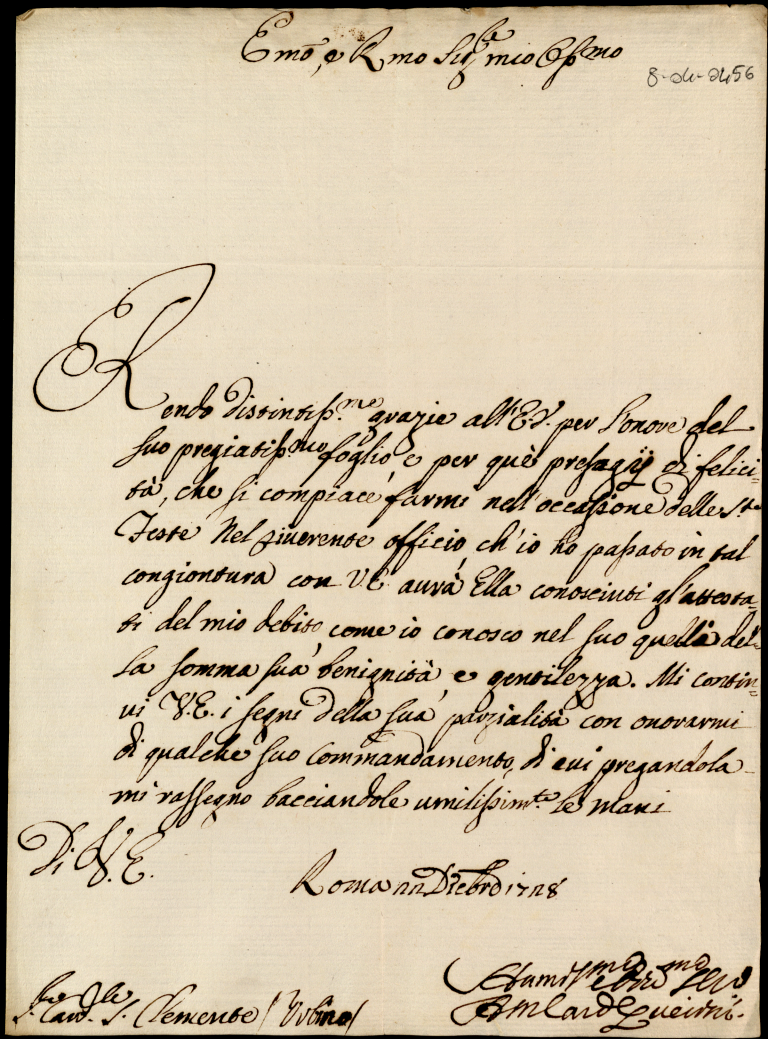 Emo, e Rmo Sigre mio Ossmo
8-24-2456
Rendo distintissme grazie all'E.V. per l'onore del
suo pregiatissmo foglio, e per què presagij di felici-
tà, che si compiace farmi nell'occasione delle Ste
Feste. Nel riverente officio, ch'io ho passato in tal
congiontura con V.E. aurà Ella conosciuti gl'attesta-
ti del mio debito, come io conosco nel suo quella del-
la somma sua benignità, e gentilezza. Mi contin-
ui V.E. i segni della sua parzialità con onorarmi
di qualche suo commandamento, di cui pregandola
mi rassegno bacciandole umilissimte le mani
Di V.E.
Roma 22 Dicbre 1728
Sr. Card.le S. Clemente (Urbino)
Humilmo e Devmo Servo
A M Card Querini